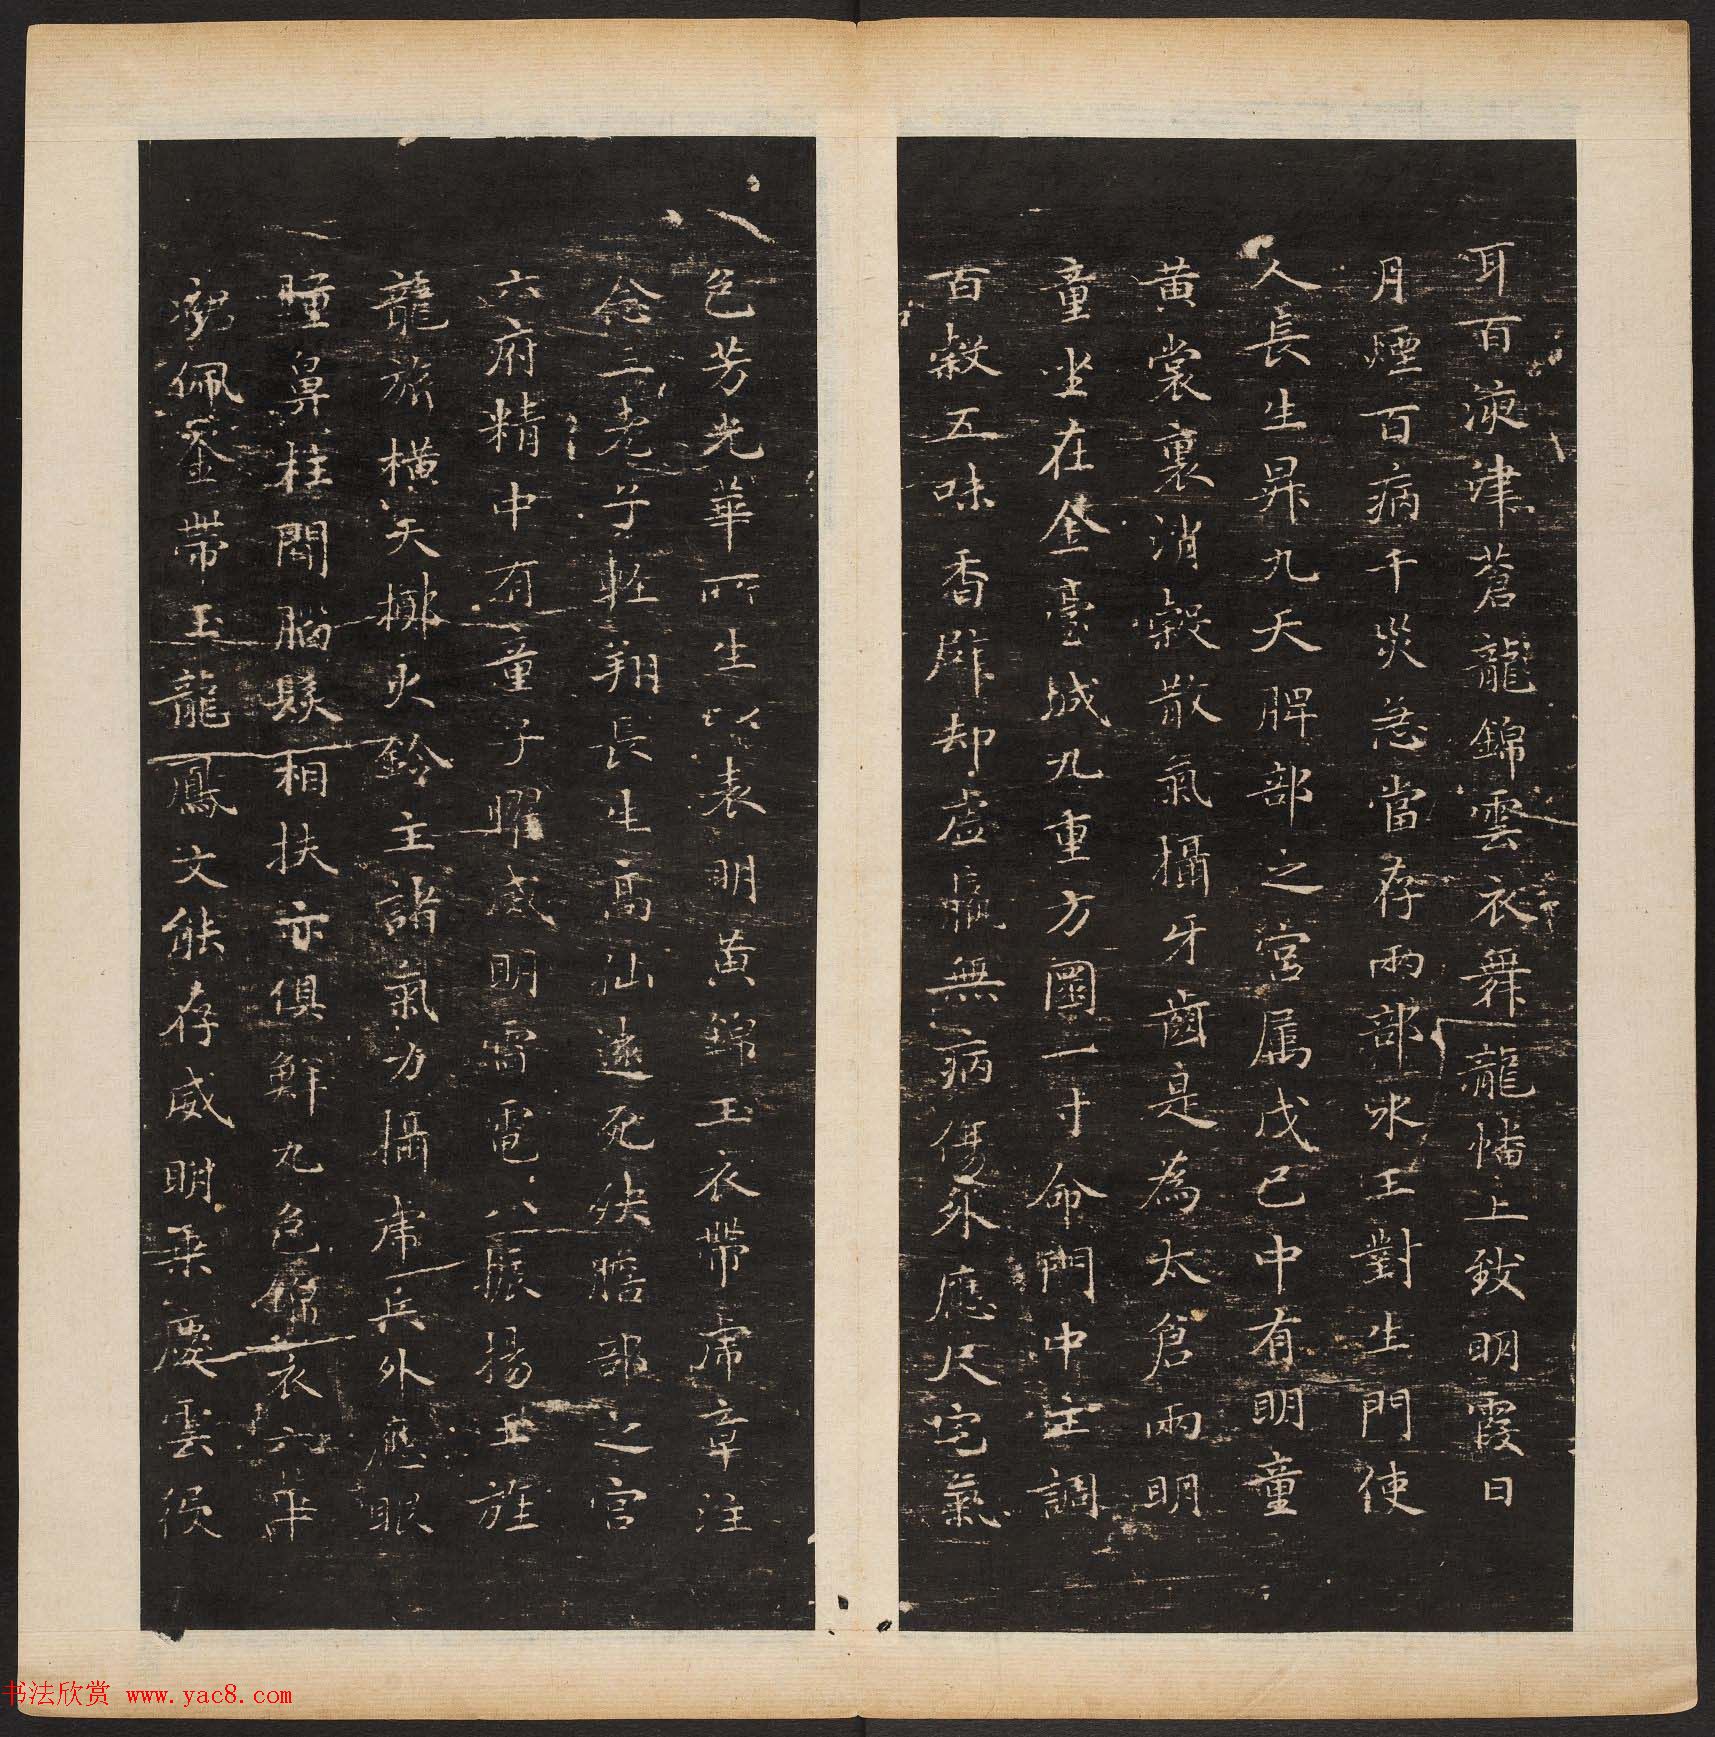 耳百液津蒼龍錦雲衣舞龍幡上致明霞日
月煙百病千災急當存兩部水王對生門使
人長生昇九天脾部之宮屬戊己中有明童
黃裳裏消穀散氣攝牙齒是為太倉兩明
童坐在金臺城九重方圓一寸命門中主調
百穀五味香辟却虛羸無病傷外應尺宅氣
色芳光華所生以表明黃錦玉衣帶虎章注
念三老子輕翔長生高仙遠死殃膽部之宮
六府精中有童子曜威明雷電八振揚玉旌
龍旂橫天擲火鈴主諸氣力攝虎兵外應眼
瞳鼻柱間腦髮相扶亦俱鮮九色錦衣六華
佩金帶玉龍鳳文能存威明乘慶雲役
书法欣赏 www.yac8.com